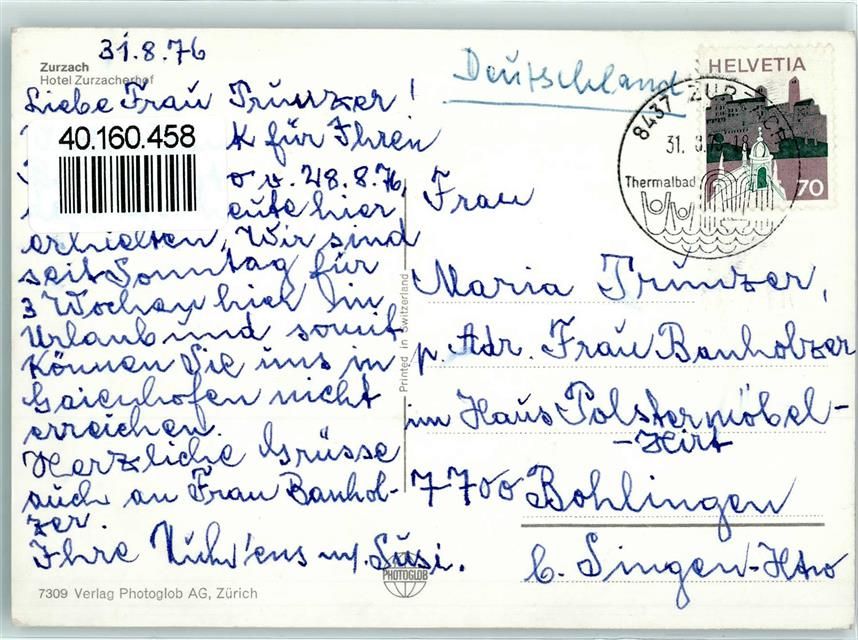 Zurzach
Hotel Zurzacherhof
31.8.76
Liebe Frau Trunzer!
40.160.458
k für Ihren
o v. 28.8.76,
eute hier
erhielten. Wir sind
seit Sonntag für
3 Wochen hier im
Urlaub und somit
können Sie uns in
Gaienhofen nicht
erreichen.
Herzliche Grüsse
auch an Frau Banhol-
zer.
Ihre
Susi.
7309 Verlag Photoglob AG, Zürich
PHOTOGLOB
Printed in Switzerland
Deutschland
HELVETIA
70
8437 ZURZACH
31. 8.76-18
Thermalbad
Frau
Maria Trunzer,
p. Adr. Frau Banholzer
im Haus Polstermöbel-
-Hirt
7700 Bohlingen
b. Singen-Htwo